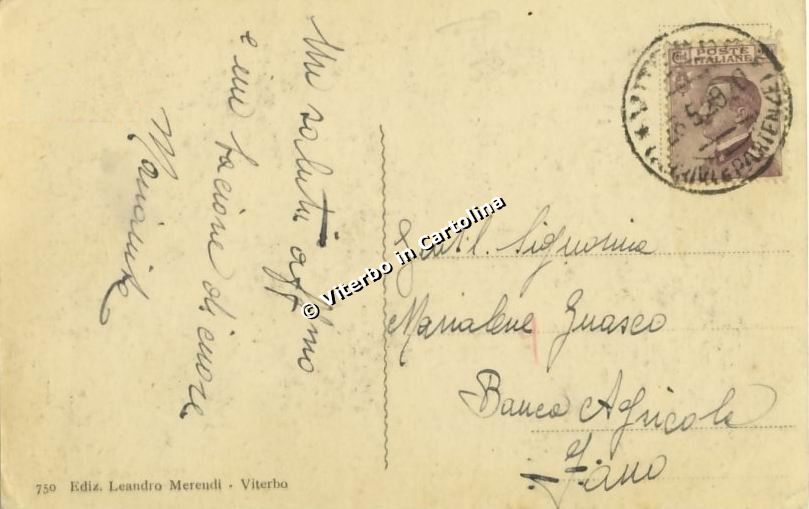 Un saluto aff.mo
e un bacione di cuore
POSTE
ITALIANE
ARRIVI E PARTENZE
© Viterbo in Cartolina
Gent.l. Signorina
Marialene Guasco
Banca Agricola
Fano
750 Ediz. Leandro Merendi - Viterbo